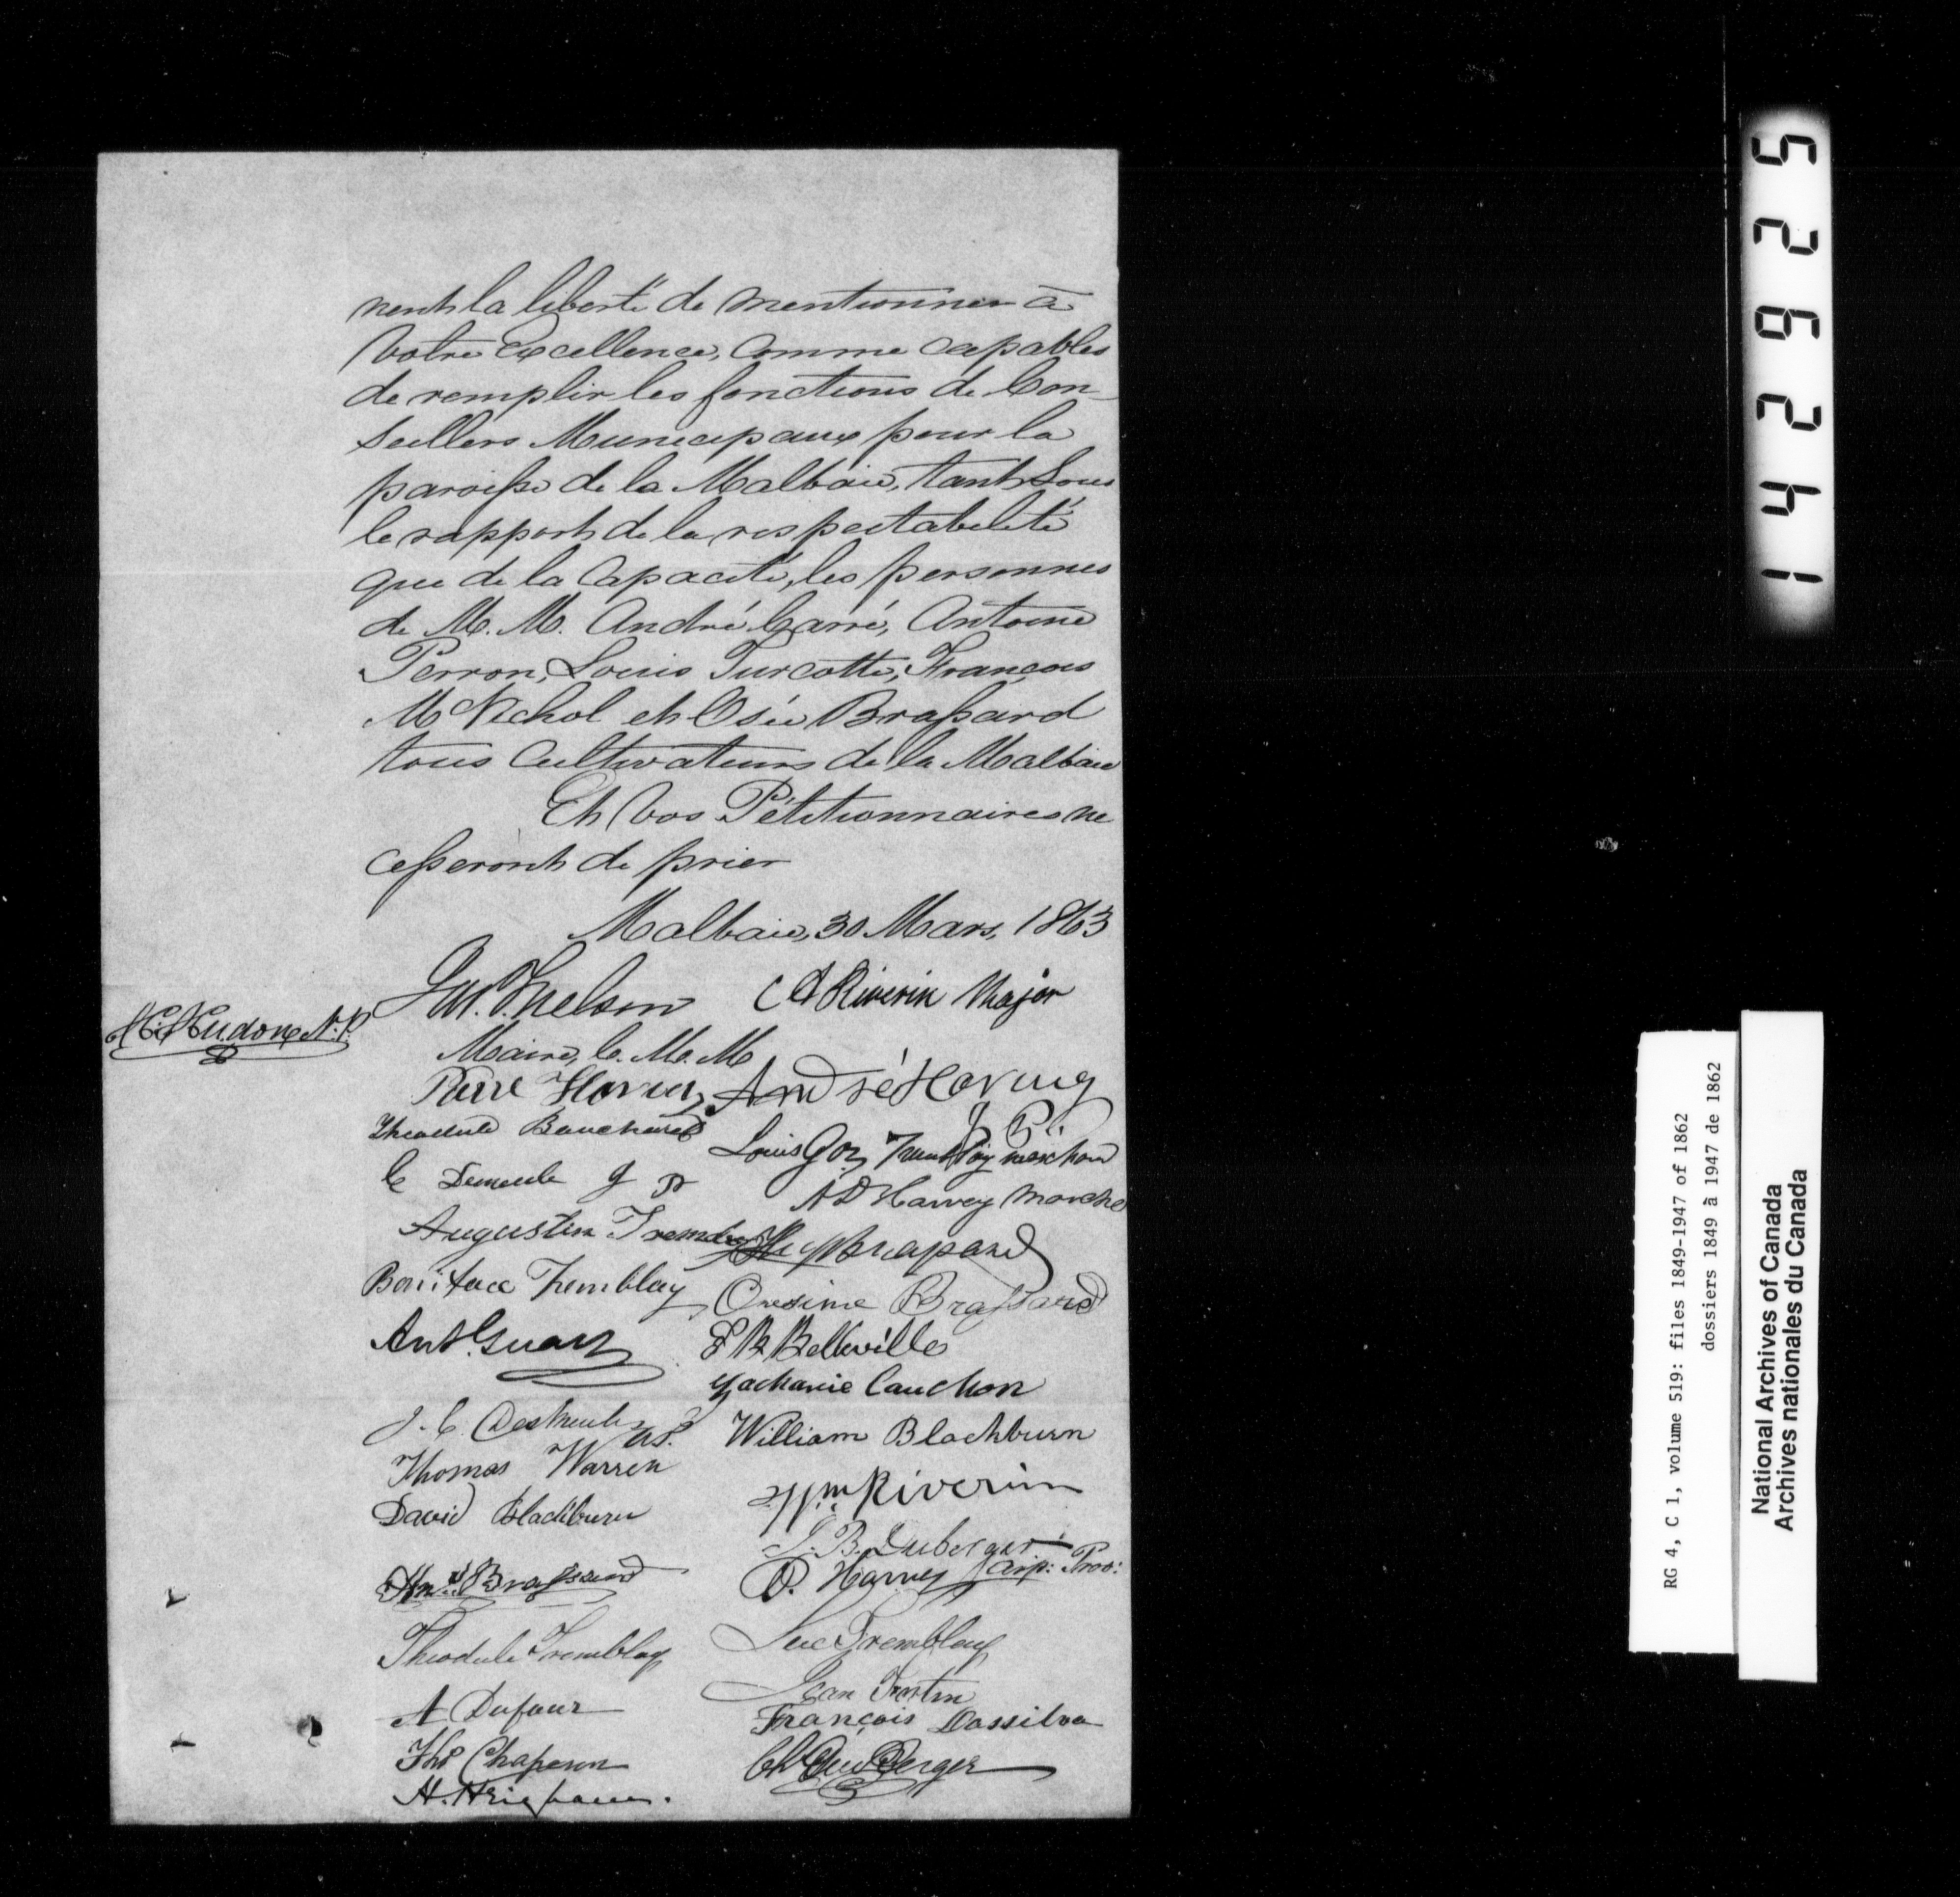 nent la liberté de mentionner à
Votre Excellence, comme capables
de remplir les fonctions de Con-
seillers Municipaux pour la
paroisse de la Malbaie, tant sous
le rapport de la respectabilité
que de la capacité, les personnes
de M. M. André Carré, Antoine
Perron, Louis Turcotte, François
McNichol et Osée Brassard
tous cultivateurs de la Malbaie
Et Vos Pétitionnaires ne
cesseront de prier
Malbaie, 30 Mars, 1863
Nelson
Riverin Major
Hudon N.P.
Maire, C. M. M
Pierre
André
J. P.
Theodule Bouchard
Louis Tremblay
C J P
Harvey
Augustin
Boniface Tremblay
Onesime Brassard
Ant.
Belleville
Zacharie Cauchon
J. C.
William Blackburn
Thomas Warren
Wm Riverin
David Blackburn
J. B. Duberger
Brassard
Harvey Arp: Prov:
Theodule Tremblay
Luc Tremblay
Jean Fortin
A Dufour
François Dassilva
Chaperon
H.
RG 4, C 1, volume 519: files 1849-1947 of 1862
dossiers 1849 à 1947 de 1862
National Archives of Canada
Archives nationales du Canada
142625